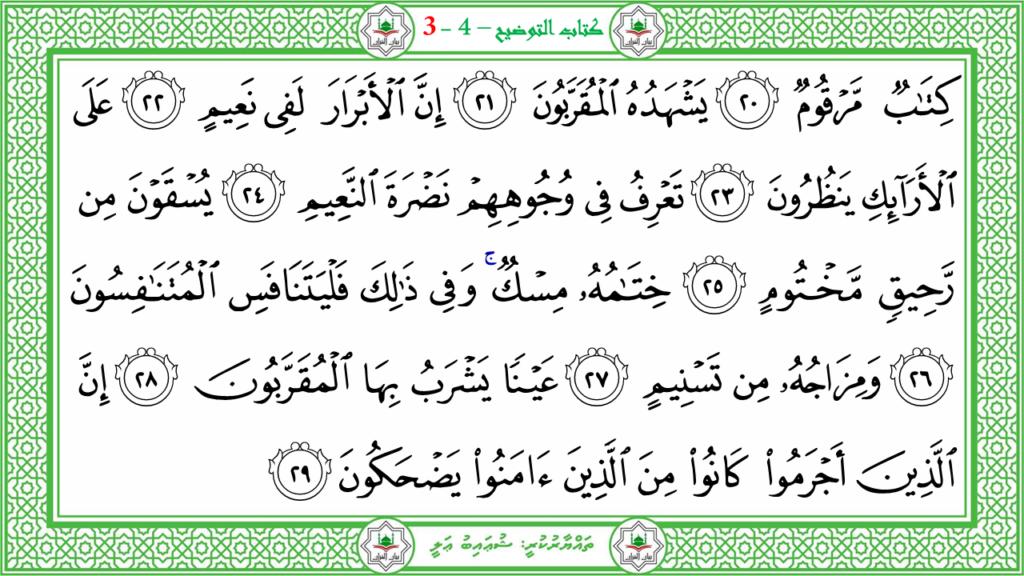 كتاب التوضيح – 4 - 3
كِتَٰبٌ مَّرْقُومٌ ٢٠ يَشْهَدُهُ ٱلْمُقَرَّبُونَ ٢١ إِنَّ ٱلْأَبْرَارَ لَفِى نَعِيمٍ ٢٢ عَلَى
ٱلْأَرَآئِكِ يَنظُرُونَ ٢٣ تَعْرِفُ فِى وُجُوهِهِمْ نَضْرَةَ ٱلنَّعِيمِ ٢٤ يُسْقَوْنَ مِن
رَّحِيقٍ مَّخْتُومٍ ٢٥ خِتَٰمُهُۥ مِسْكٌ ۚ وَفِى ذَٰلِكَ فَلْيَتَنَافَسِ ٱلْمُتَنَٰفِسُونَ
٢٦ وَمِزَاجُهُۥ مِن تَسْنِيمٍ ٢٧ عَيْنًا يَشْرَبُ بِهَا ٱلْمُقَرَّبُونَ ٢٨ إِنَّ
ٱلَّذِينَ أَجْرَمُوا۟ كَانُوا۟ مِنَ ٱلَّذِينَ ءَامَنُوا۟ يَضْحَكُونَ ٢٩
ތައްޔާރުކުރީ: ޝުޢައިބު ޢަލީ